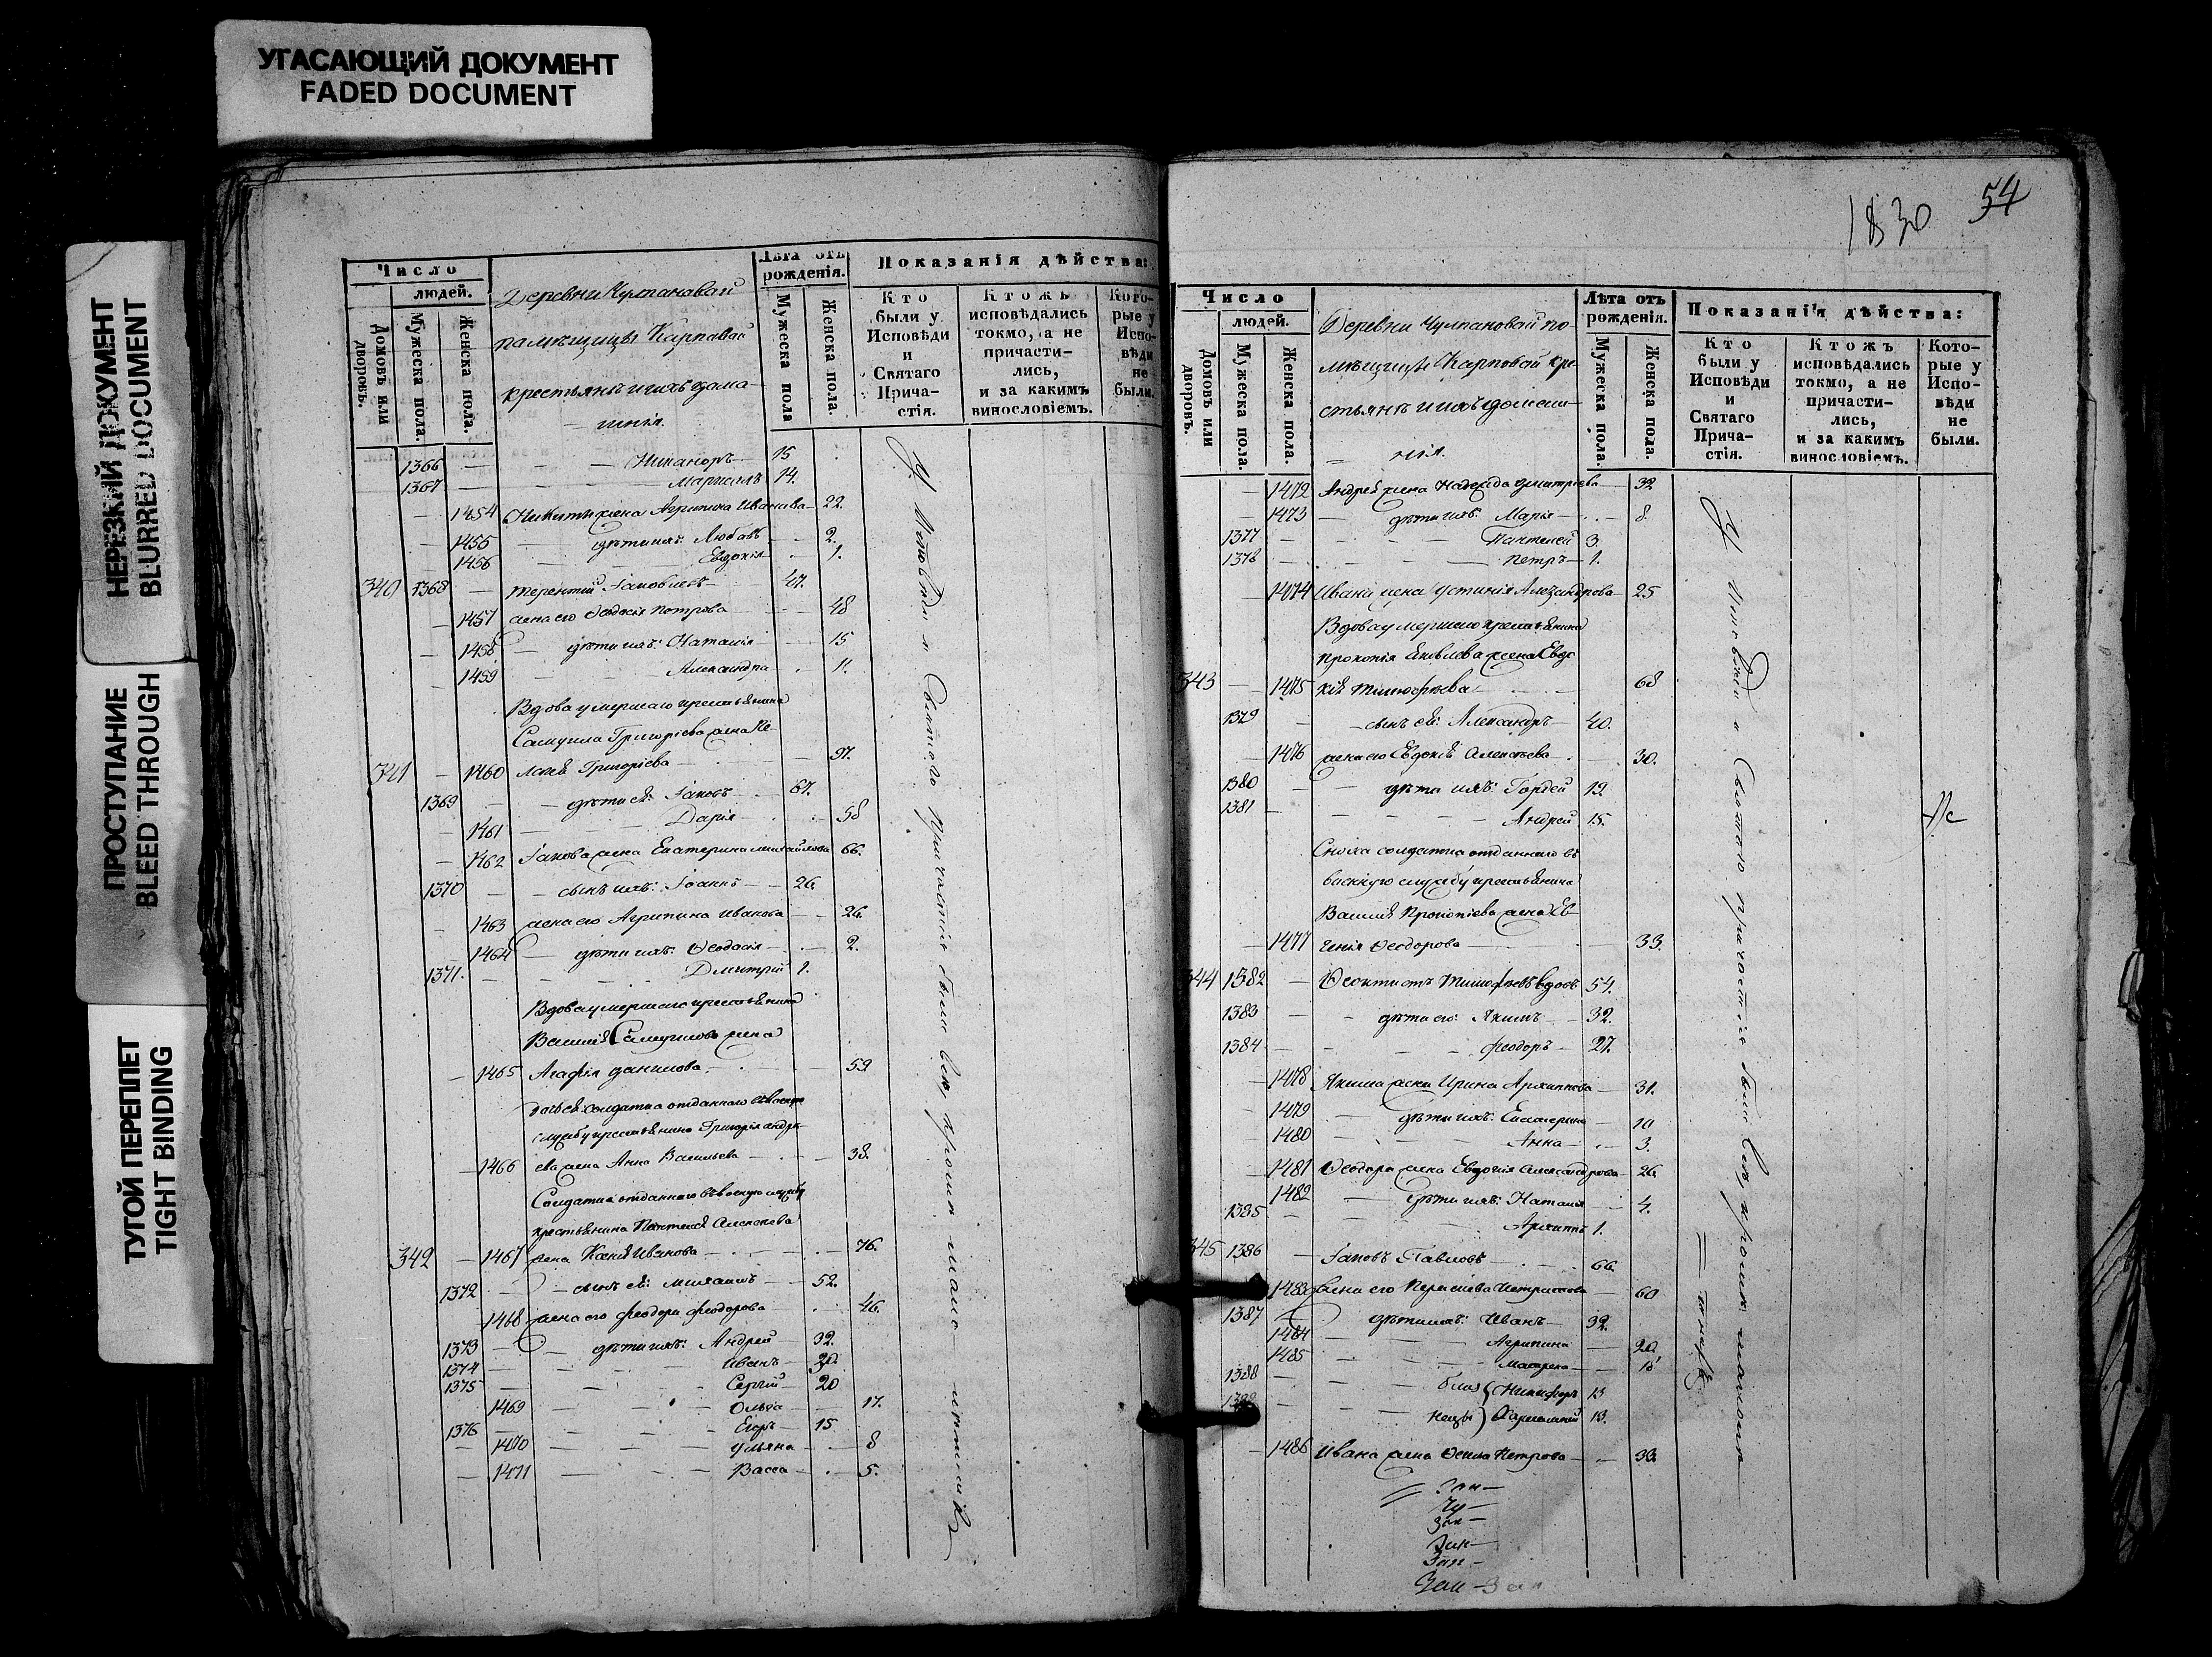 УГАСАЮЩИЙ ДОКУМЕНТ
FADED DOCUMENT
НЕРЕЗКИЙ ДОКУМЕНТ
BLURRED DOCUMENT
ПРОСТУПАНИЕ
BLEED THROUGH
ТУГОЙ ПЕРЕПЛЕТ
TIGHT BINDING
Число
людей.
Домовъ или дворовъ.
Мужеска пола.
Женска пола.
Деревни Чулпановай
памѣщицы Карпавой
крестьянъ и ихъ дама-
шнія.
Лѣта отъ рожденія.
Мужеска пола
Женска пола.
Показанія дѣйства:
Кто были у Исповѣди и Святаго Прича- стія.
Ктожъ исповѣдались токмо, а не причасти- лись, и за какимъ винословіемъ.
Кото- рые у Испо- вѣди не были.
1366 — Никаноръ 15
1367 — 14.
1454 Никиты жена Агрипина Иванова 22.
1455 дѣти ихъ: Любавь 2.
1456 Евдокія 1.
340 1368 Терентій Іаковлевъ 47.
1457 жена его Ѳеодосія Петрова 48
1458 дѣти ихъ: Наталія 15
1459 Александра 11.
Вдова умершаго крестьянина
Самуила Григоріева жена Пе-
341 1460 Григоріева 97.
1369 дѣти ея: Іаковъ 67.
1461 Дарія 58
1462 Іакова жена Екатерина Михайлова 66.
1370 сынъ ихъ: Іоаннъ 26
1463 жена его Агрипина Иванова 26.
1464 дѣти ихъ: Ѳеодосія 2.
1371. Дмитрій 1.
Вдова умершаго крестьянина
Василія Самуилова жена
1465 Агафія Данилова 59
солдатка отданнаго въ военную
службу крестьянина Григорія Андре-
1466 ева жена Анна Васильева 38.
Солдатка отданнаго въ военную службу
крестьянина Пантелея Алексѣева
342 1467 жена Ксенія Иванова 76.
1372 сынъ ея: Михаилъ 52.
1468 жена его Феодора Феодорова 46.
1373 дѣти ихъ: Андрей 32.
1374 Иванъ
1375 Сергій 20
1469 Ольга 17.
1376 Егоръ 15
1470 Ульяна 8
1471 Васса 5.
У Исповѣди и Святаго причастія были
1830
54
Число
людей.
Домовъ или дворовъ.
Мужеска пола.
Женска пола.
Деревни Чулпановой по-
мѣщицы Карповой кре-
стьянъ и ихъ домаш-
нія.
Лѣта отъ рожденія.
Мужеска пола.
Женска пола.
Показанія дѣйства:
Кто были у Исповѣди и Святаго Прича- стія.
Ктожъ исповѣдались токмо, а не причасти- лись, и за какимъ винословіемъ.
Кото- рые у Испо- вѣди не были.
1472 Андрея жена Надежда Дмитріева 32
1473 дѣти ихъ: Марія 8.
1377 Пантелей 3.
1378 Петръ 1.
1474 Ивана жена Устинія Александрова 25
Вдова умершаго крестьянина
Прокопія Яковлева жена Евдо
343 1475 кія Тимофѣева 68
1379 сынъ ея: Александръ 40.
1476 жена его Евдокія Алексѣева 30.
1380 дѣти ихъ: Гордей 19.
1381 Андрей 15.
Сноха солдатка отданнаго въ
военную службу крестьянина
Василія Прокопіева жена Ев-
1477 генія Ѳеодорова 33.
344 1382 Ѳеоктистъ Тимофѣевъ вдовъ 54.
1383 дѣти его: Якимъ 32.
1384 Феодоръ 27.
1478 Якима жена Ирина Архипова 31.
1479 дѣти ихъ: Екатерина 10
1480 Анна 3.
1481 Ѳеодора жена Евдокія Александрова 26
1482 дѣти ихъ: Наталія 4.
1385 Архиппъ 1.
345 1386 Іаковъ Павловъ 66.
1483 жена его 60
1387 дѣти ихъ: Иванъ 32.
1484 Агрипина 20.
1485 Матрена 18
1388 близ Никифоръ 13
нецы 13.
1486 Ивана жена Петрова 33.
У Исповѣди и Святаго причастія были